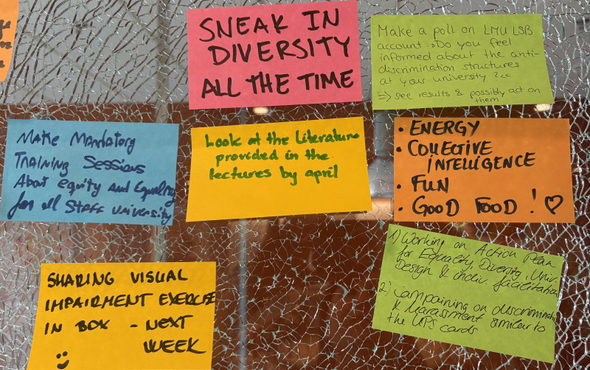 SNEAK IN
DIVERSITY
ALL THE TIME
Make a poll on LMU LSB
account: Do you feel
informed about the anti-
discrimination structures
at your university?
=> see results & possibly act on
them
Make Mandatory
Training Sessions
About equity and Equality
for all Staff university
Look at the Literature
provided in the
lectures by april
• ENERGY
• COLLECTIVE
INTELLIGENCE
• FUN
• GOOD FOOD! ♡
SHARING VISUAL
IMPAIRMENT EXERCISE
IN BOX - NEXT
WEEK
:)
1) Working on Action Plan
for Equality, Diversity, Univ.
Design & indiv. facilitation
2) Campaining on discrimination
& harassment similar to
the UPS cards